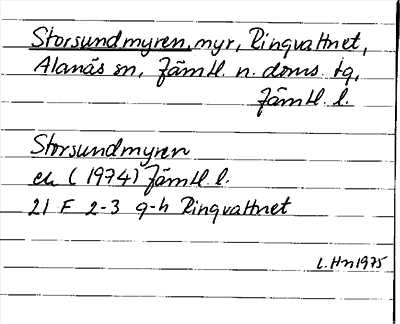 Storsundmyren, myr, Ringvattnet,
Alanäs sn, Jämtl. n. doms. tg,
Jämtl. l.
Storsundmyren
ek (1974) Jämtl. l.
21 F 2-3 g-h Ringvattnet
L. Hn 1975